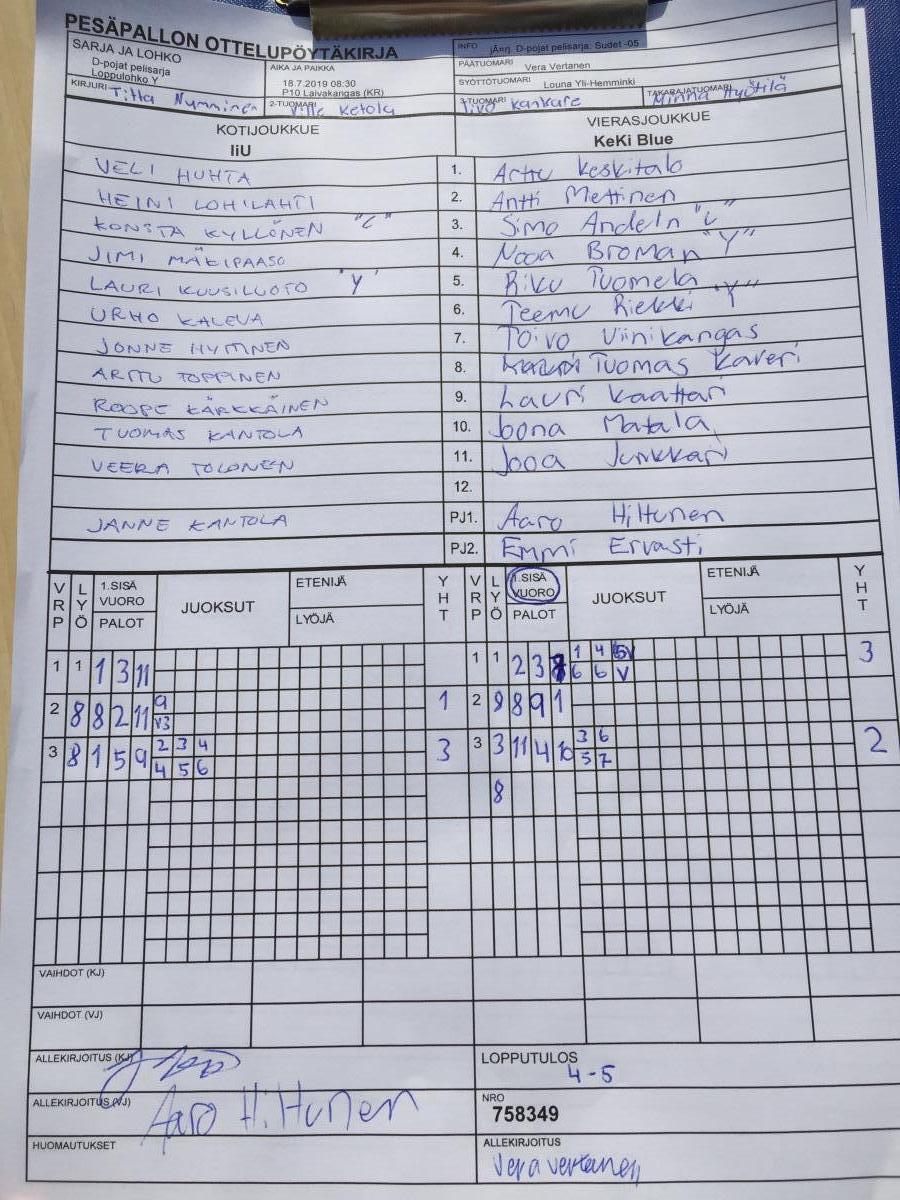 PESÄPALLON OTTELUPÖYTÄKIRJA
SARJA JA LOHKO
D-pojat pelisarja
Loppulohko Y
AIKA JA PAIKKA
18.7.2019 08:30
P10 Laivakangas (KR)
INFO jÄrj. D-pojat pelisarja: Sudet -05
PÄÄTUOMARI Vera Vertanen
SYÖTTÖTUOMARI Louna Yli-Hemminki
KIRJURI Titta Nymminen
2-TUOMARI Ville Ketola
3-TUOMARI Kankare
TAKARAJATUOMARI Minna Hyötilä
KOTIJOUKKUE
IiU
VIERASJOUKKUE
KeKi Blue
VELI HUHTA 1. Arttu Keskitalo
HEINI LOHILAHTI 2. Antti Mettinen
KONSTA KYLLÖNEN "C" 3. Simo Andeln "L"
JIMI MÄKIPAASO 4. Nooa Broman "Y"
LAURI KUUSILUOTO "Y" 5. Riku Tuomela
URHO KALEVA 6. Teemu Riekki "Y"
JONNE HYTTINEN 7. Toivo Viinikangas
ARTTU TOPPINEN 8. Tuomas Kaveri
ROOPE KÄRKKÄINEN 9. Lauri Kaattari
TUOMAS KANTOLA 10. Joona Matala
VEERA TOLONEN 11. Jooa Junkkari
12.
JANNE KANTOLA PJ1. Aaro Hiltunen
PJ2. Emmi Ervasti
VRP LYÖ 1.SISÄ VUORO PALOT JUOKSUT ETENIJÄ LYÖJÄ YHT VRP LYÖ 1.SISÄ VUORO PALOT JUOKSUT ETENIJÄ LYÖJÄ YHT
1 1 1 3 11 1 1 2 3 1 4 3
6 6 V
2 8 8 2 11 9 1 2 9 8 9 1
V3
3 8 1 5 9 2 3 4 3 3 3 11 4 10 3 6 2
4 5 6 5 7
8
VAIHDOT (KJ)
VAIHDOT (VJ)
ALLEKIRJOITUS (KJ)
LOPPUTULOS
4-5
ALLEKIRJOITUS (VJ) Aaro Hiltunen
NRO
758349
HUOMAUTUKSET
ALLEKIRJOITUS
Vera Vertanen